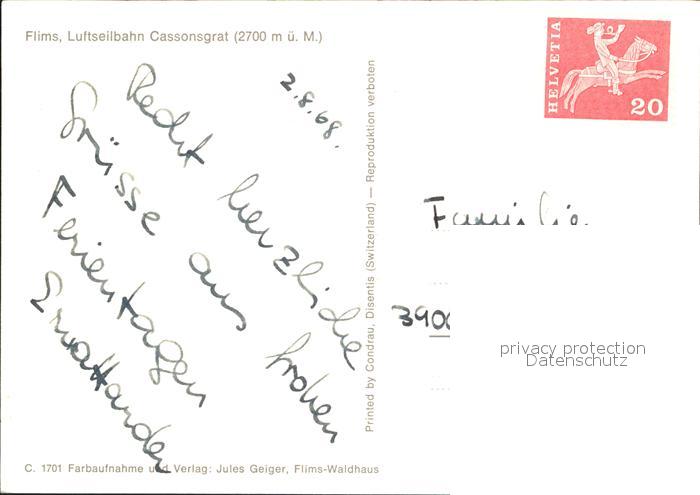 Flims, Luftseilbahn Cassonsgrat (2700 m ü. M.)
2.8.68.
Recht herzliche
Grüsse aus frohen
Ferientagen
Printed by Condrau, Disentis (Switzerland) — Reproduktion verboten
C. 1701 Farbaufnahme und Verlag: Jules Geiger, Flims-Waldhaus
HELVETIA
20
Familie.
390
privacy protection
Datenschutz